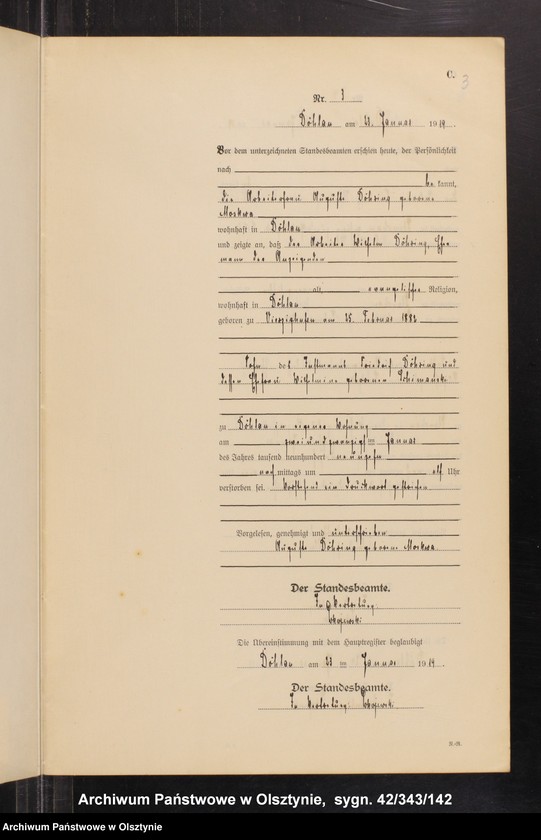 C.
3
Nr. 3
Döhlau am 23. Januar 1919.
Vor dem unterzeichneten Standesbeamten erschien heute, der Persönlichkeit
nach
be kannt,
die Arbeiterfrau Auguste Döhring geborene
Morkwa
wohnhaft in Döhlau
und zeigte an, daß der Arbeiter Wilhelm Döhring, Ehe
mann der Anzeigenden
alt, evangelischer Religion,
wohnhaft in Döhlau
geboren zu am 25. Februar 1882
Sohn des Döhring und
dessen Ehefrau Wilhelmine geborenen Schimanski
zu Döhlau in eigener Wohnung
am zweiundzwanzigsten Januar
des Jahres tausend neunhundert neunzehn
nachmittags um elf Uhr
verstorben sei. Vorstehend ein Druckwort gestrichen
Vorgelesen, genehmigt und unterschrieben
Auguste Döhring geborene Morkwa
Der Standesbeamte.
In Vertretung
Die Übereinstimmung mit dem Hauptregister beglaubigt
Döhlau am 23 ten Januar 1919.
Der Standesbeamte.
In Vertretung:
Archiwum Państwowe w Olsztynie, sygn. 42/343/142
Archiwum Państwowe w Olsztynie